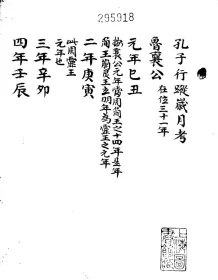 295918
孔子行蹤歲月考
魯襄公 在位三十一年
元年己丑
按襄公元年當周簡王之十四年是年
簡王崩靈王立明年為靈王之元年
二年庚寅
此周靈王
元年也
三年辛卯
四年壬辰